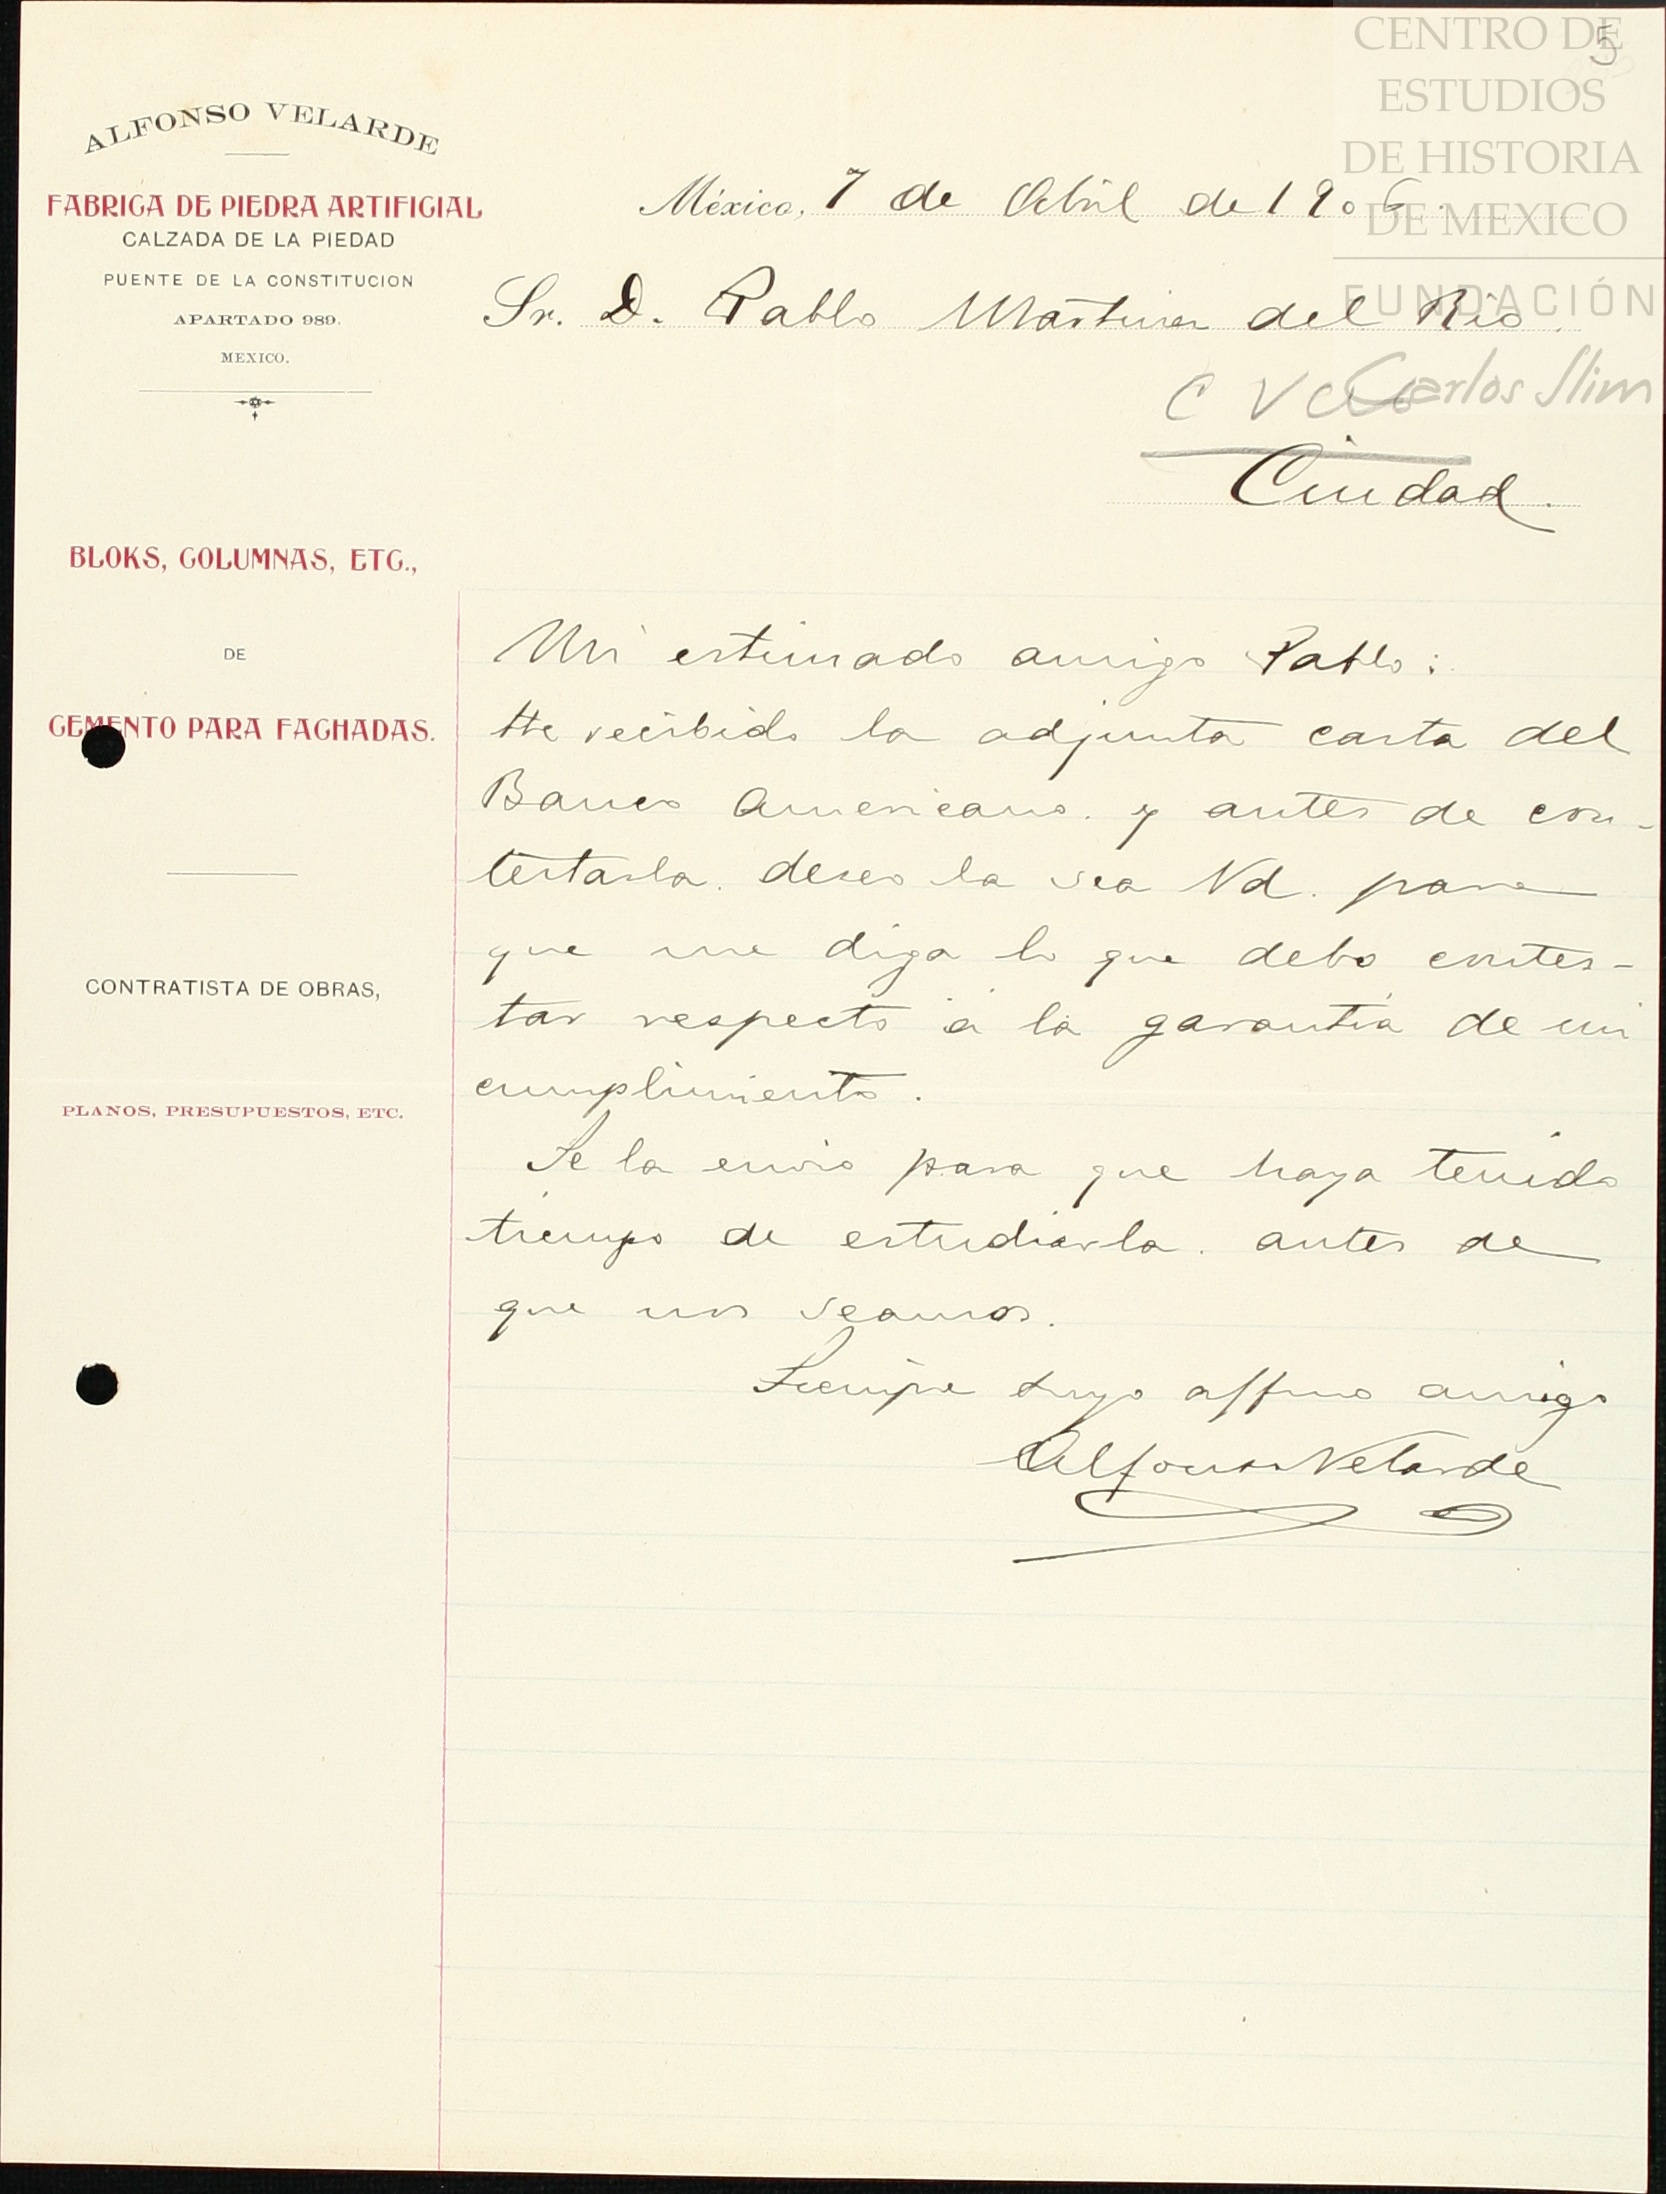 5
CENTRO DE
ESTUDIOS
DE HISTORIA
DE MEXICO
FUNDACIÓN
Carlos Slim
ALFONSO VELARDE
FABRICA DE PIEDRA ARTIFICIAL
CALZADA DE LA PIEDAD
PUENTE DE LA CONSTITUCION
APARTADO 989.
MEXICO.
BLOKS, COLUMNAS, ETC.,
DE
CEMENTO PARA FACHADAS.
CONTRATISTA DE OBRAS,
PLANOS, PRESUPUESTOS, ETC.
México, 7 de Abril de 1906.
Sr. D. Pablo Martinez del Rio.
C V
Ciudad.
Mi estimado amigo Pablo:
He recibido la adjunta carta del
Banco Americano. y antes de con-
testarla. deseo la vea Vd. para
que me diga lo que debo contes-
tar respecto á la garantia de mi
cumplimiento.
Se la envio para que haya tenido
tiempo de estudiarla. antes de
que nos veamos.
Siempre suyo affmo amigo
Alfonso Velarde